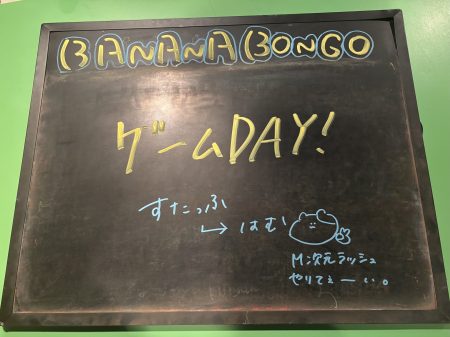 BANANA BONGO
ゲームDAY!
すたっふ
↳ はむ
M次元ラッシュ
やりてぇー…。